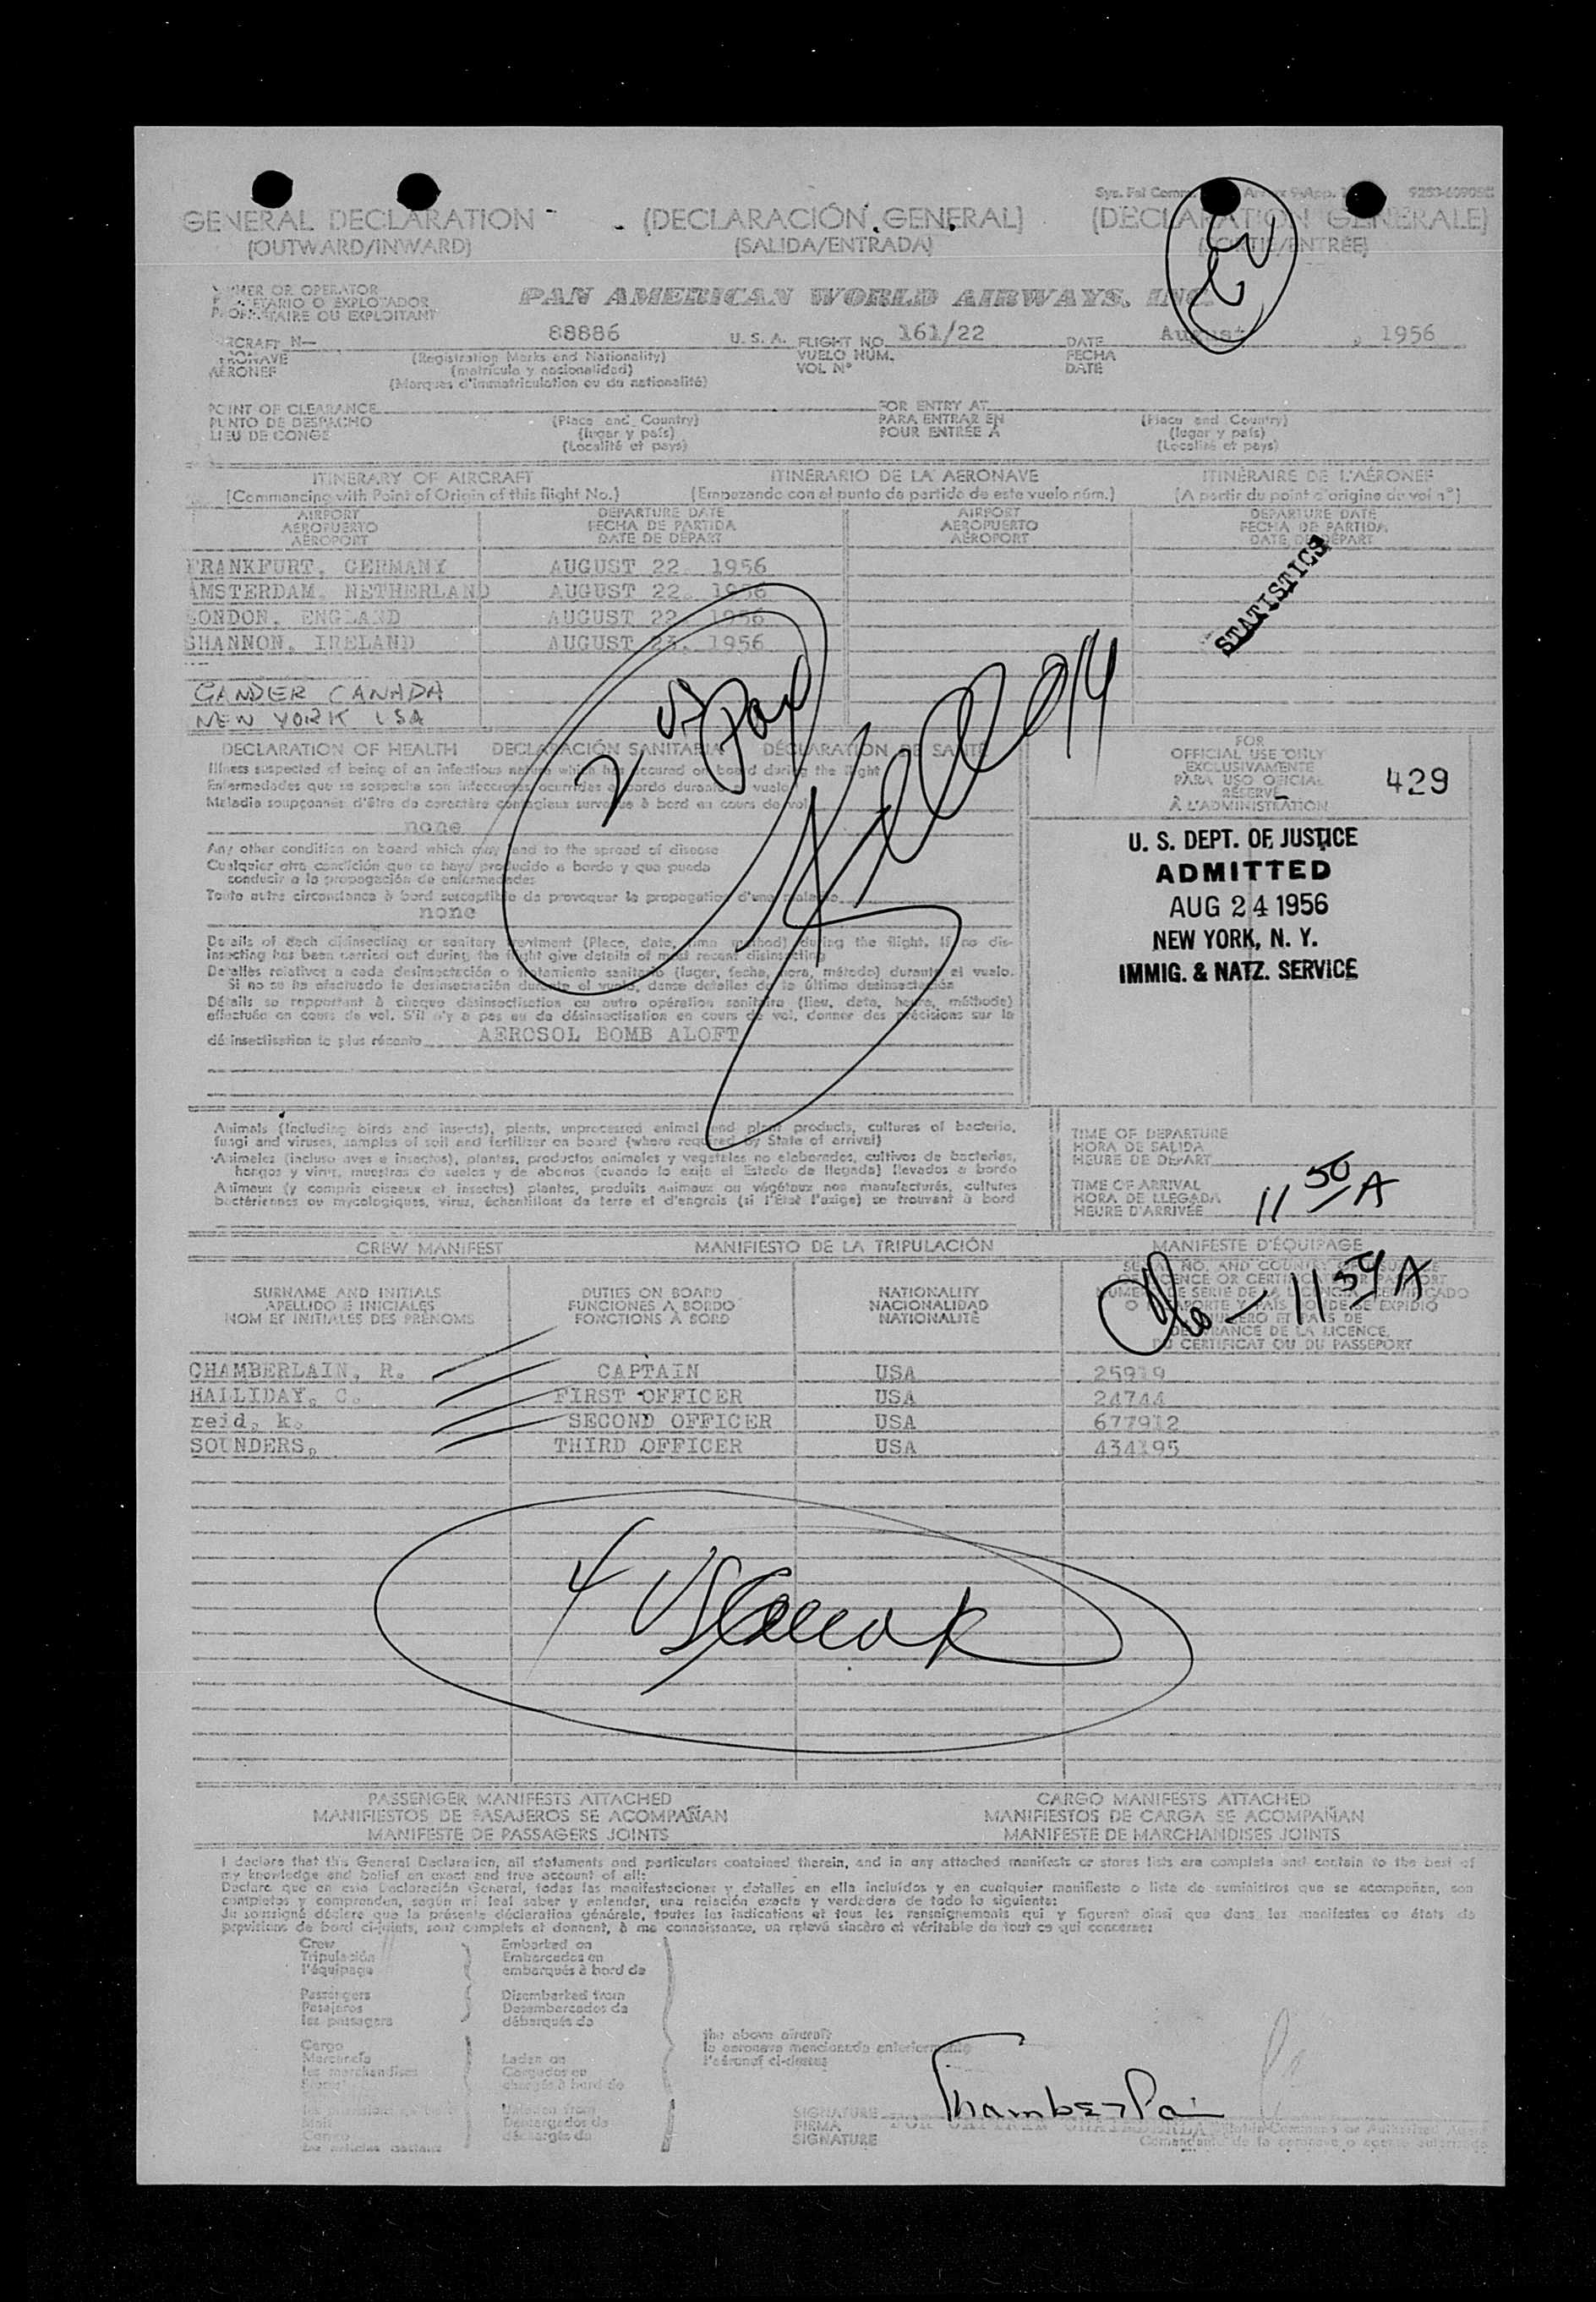 GENERAL DECLARATION (DECLARACIÓN GENERAL) (DÉCLARATION GÉNÉRALE)
(OUTWARD/INWARD) (SALIDA/ENTRADA) (SORTIE/ENTRÉE)
OWNER OR OPERATOR
PROPIETARIO O EXPLOTADOR
PROPRIÉTAIRE OU EXPLOITANT
PAN AMERICAN WORLD AIRWAYS, INC.
AIRCRAFT N— 88886 U. S. A. FLIGHT NO. 161/22 DATE August , 1956
AERONAVE (Registration Marks and Nationality) VUELO NÚM. FECHA
AÉRONEF (matrícula y nacionalidad) VOL Nº DATE
(Marques d'immatriculation ou de nationalité)
POINT OF CLEARANCE FOR ENTRY AT
PUNTO DE DESPACHO (Place and Country) PARA ENTRAR EN (Place and Country)
LIEU DE CONGÉ (lugar y país) POUR ENTRÉE À (lugar y país)
(Localité et pays) (Localité et pays)
ITINERARY OF AIRCRAFT ITINERARIO DE LA AERONAVE ITINÉRAIRE DE L'AÉRONEF
(Commencing with Point of Origin of this flight No.) (Empezando con el punto de partida de este vuelo núm.) (A partir du point d'origine de vol nº)
AIRPORT DEPARTURE DATE AIRPORT DEPARTURE DATE
AEROPUERTO FECHA DE PARTIDA AEROPUERTO FECHA DE PARTIDA
AÉROPORT DATE DE DÉPART AÉROPORT DATE DE DÉPART
FRANKFURT, GERMANY AUGUST 22, 1956
AMSTERDAM, NETHERLAND AUGUST 22, 1956
LONDON, ENGLAND AUGUST 22, 1956
SHANNON, IRELAND AUGUST 23, 1956
STATISTICS
GANDER CANADA
NEW YORK USA
DECLARATION OF HEALTH DECLARACIÓN SANITARIA DÉCLARATION DE SANTÉ
Illness suspected of being of an infectious nature which has occured on board during the flight
Enfermedades que se sospecha son infecciosas ocurridas a bordo durante el vuelo
Maladie soupçonnés d'être de caractère contagieux survenue à bord en cours de vol
none
Any other condition on board which may lead to the spread of disease
Cualquier otra condición que se haya producido a bordo y que pueda
conducir a la propagación de enfermedades
Toute autre circonstance à bord susceptible de provoquer la propagation d'une maladie
none
Details of each disinsecting or sanitary treatment (Place, date, time method) during the flight. If no dis-
insecting has been carried out during the flight give details of most recent disinsecting
Detalles relativos a cada desinsectación o tratamiento sanitario (lugar, fecha, hora, método) durante el vuelo.
Si no se ha efectuado la desinsectación durante el vuelo, danse detalles de la última desinsectación
Détails se rapportant à chaque désinsectisation ou autre opération sanitaire (lieu, date, heure, méthode)
effectuée en cours de vol. S'il n'y a pas eu de désinsectisation en cours de vol, donner des précisions sur la
désinsectisation la plus récente AEROSOL BOMB ALOFT
2 US Pax
FOR
OFFICIAL USE ONLY
EXCLUSIVAMENTE
PARA USO OFICIAL
RÉSERVÉ
À L'ADMINISTRATION
429
U. S. DEPT. OF JUSTICE
ADMITTED
AUG 24 1956
NEW YORK, N. Y.
IMMIG. & NATZ. SERVICE
Animals (including birds and insects), plants, unprocessed animal and plant products, cultures of bacteria,
fungi and viruses, samples of soil and fertilizer on board (where required by State of arrival)
Animales (incluso aves e insectos), plantas, productos animales y vegetales no elaborados, cultivos de bacterias,
hongos y virus, muestras de suelos y de abonos (cuando lo exija el Estado de llegada) llevados a bordo
Animaux (y compris oiseaux et insectes) plantes, produits animaux ou végétaux non manufacturés, cultures
bactériennes ou mycologiques, virus, échantillons de terre et d'engrais (si l'État l'exige) se trouvant à bord
TIME OF DEPARTURE
HORA DE SALIDA
HEURE DE DÉPART
TIME OF ARRIVAL
HORA DE LLEGADA
HEURE D'ARRIVÉE 11 50 A
CREW MANIFEST MANIFIESTO DE LA TRIPULACIÓN MANIFESTE D'ÉQUIPAGE
11 54 A
SURNAME AND INITIALS DUTIES ON BOARD NATIONALITY
APELLIDO E INICIALES FUNCIONES A BORDO NACIONALIDAD
NOM ET INITIALES DES PRÉNOMS FONCTIONS À BORD NATIONALITÉ
DU CERTIFICAT OU DU PASSEPORT
CHAMBERLAIN, R. CAPTAIN USA 25919
HALLIDAY, C. FIRST OFFICER USA 24744
reid, k. SECOND OFFICER USA 677912
SOUNDERS, THIRD OFFICER USA 434195
4 US
PASSENGER MANIFESTS ATTACHED CARGO MANIFESTS ATTACHED
MANIFIESTOS DE PASAJEROS SE ACOMPAÑAN MANIFIESTOS DE CARGA SE ACOMPAÑAN
MANIFESTE DE PASSAGERS JOINTS MANIFESTE DE MARCHANDISES JOINTS
I declare that this General Declaration, all statements and particulars contained therein, and in any attached manifests or stores lists are complete and contain to the best of
my knowledge and belief an exact and true account of all:
Declaro que en esta Declaración General, todas las manifestaciones y detalles en ella incluídos y en cualquier manifiesto o lista de suministros que se acompañen, son
completos y comprenden, según mi leal saber y entender, una relación exacta y verdadera de todo lo siguiente:
Je soussigné déclare que la présente déclaration générale, toutes les indications et tous les renseignements qui y figurent ainsi que dans les manifestes ou états de
provisions de bord ci-joints, sont complets et donnent, à ma connaissance, un relevé sincère et véritable de tout ce qui concerne:
Crew Embarked on
Tripulación Embarcados en
l'équipage embarqués à bord de
Passengers Disembarked from
Pasajeros Desembarcados de
les passagers débarqués de
the above aircraft
la aeronave mencionada anteriormente
l'aéronef ci-dessus
Cargo
Mercancía Laden on
les marchandises Cargados en
chargés à bord de
Unladen from
Mail Descargados de
Correo déchargés de
SIGNATURE Chamberlain
FIRMA
SIGNATURE